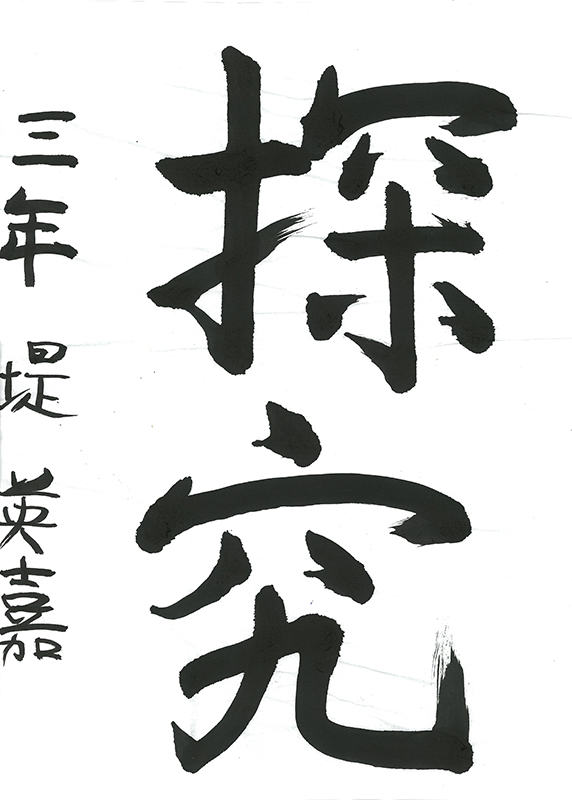 探究
三年 堤 英嘉